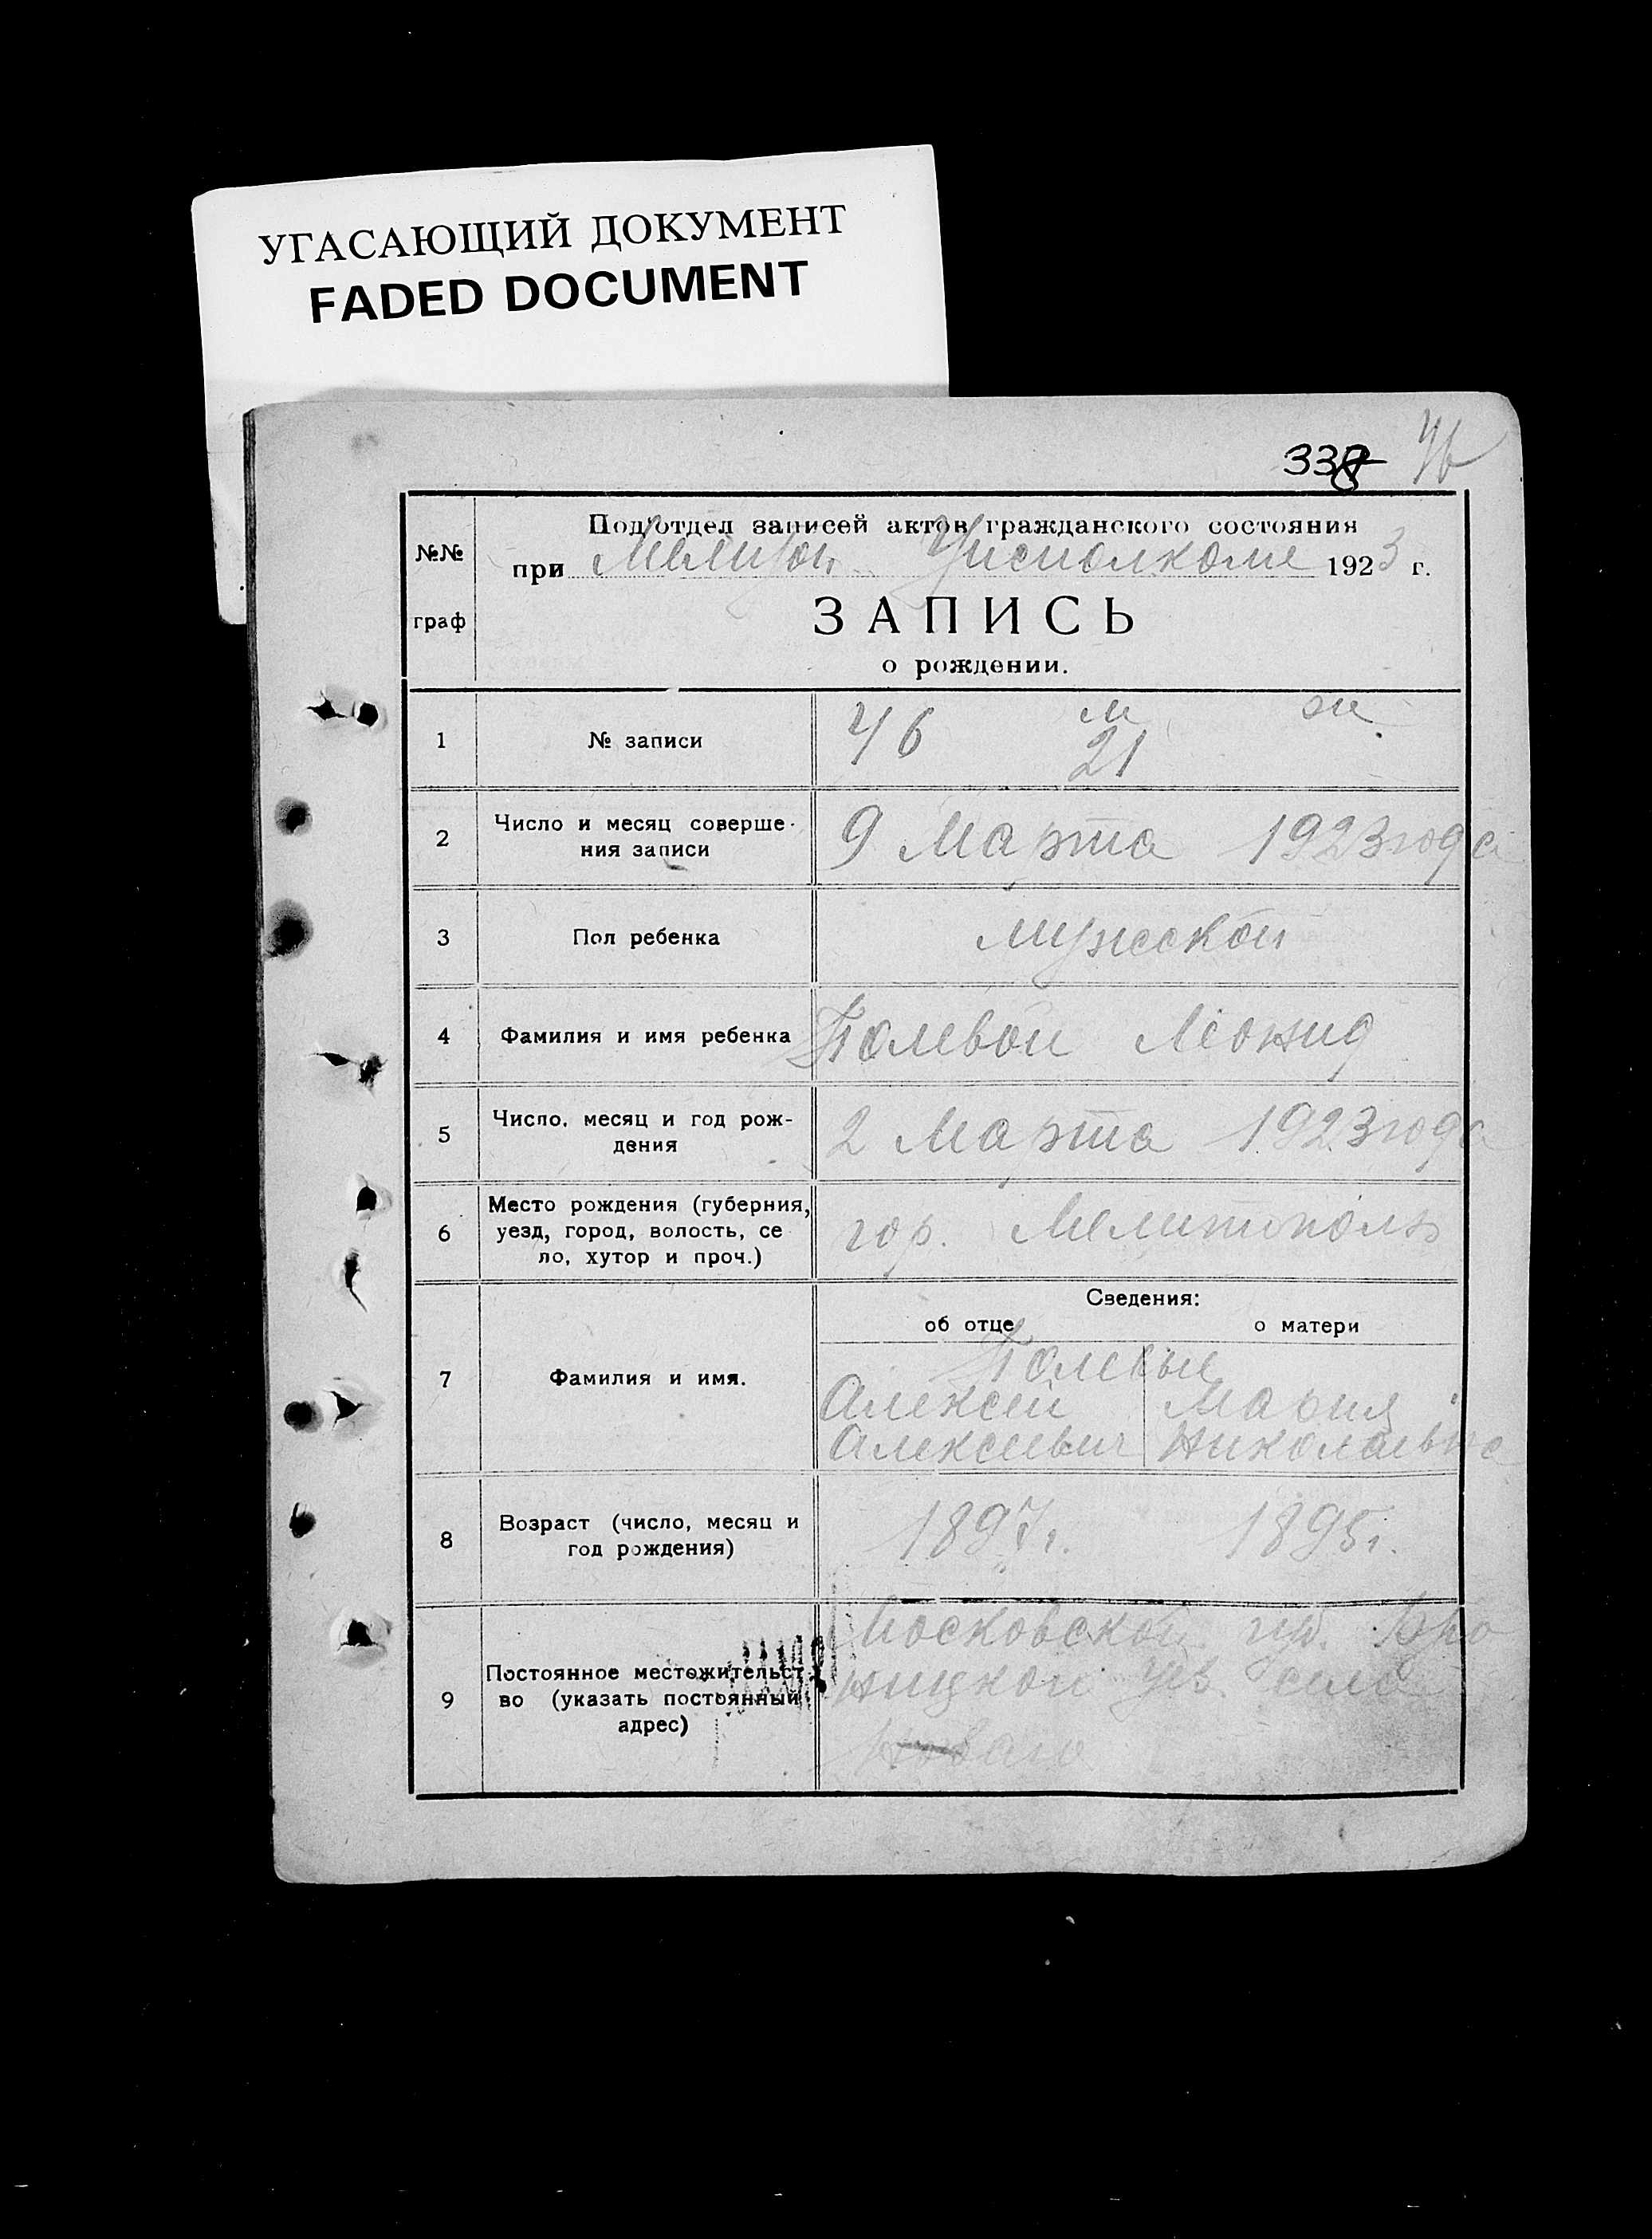 УГАСАЮЩИЙ ДОКУМЕНТ
FADED DOCUMENT
338 46
№№ граф
Подотдел записей актов гражданского состояния
при Мелитоп. Уисполкоме 1923 г.
ЗАПИСЬ
о рождении.
1 № записи 46 м 21 ж.
2 Число и месяц соверше-
ния записи
9 Марта 1923 года
3 Пол ребенка мужской
4 Фамилия и имя ребенка Полевой Леонид
5 Число, месяц и год рож-
дения
2 Марта 1923 года
6 Место рождения (губерния,
уезд, город, волость, се
ло, хутор и проч.)
гор. Мелитополь
Сведения:
об отце о матери
7 Фамилия и имя.
Полевые
Алексей Мария
Алексеевич Николаевна
8 Возраст (число, месяц и
год рождения)
1897 г. 1895 г.
9 Постоянное местожительст
во (указать постоянный
адрес)
Московской губ. Бро
ницкой уез. село